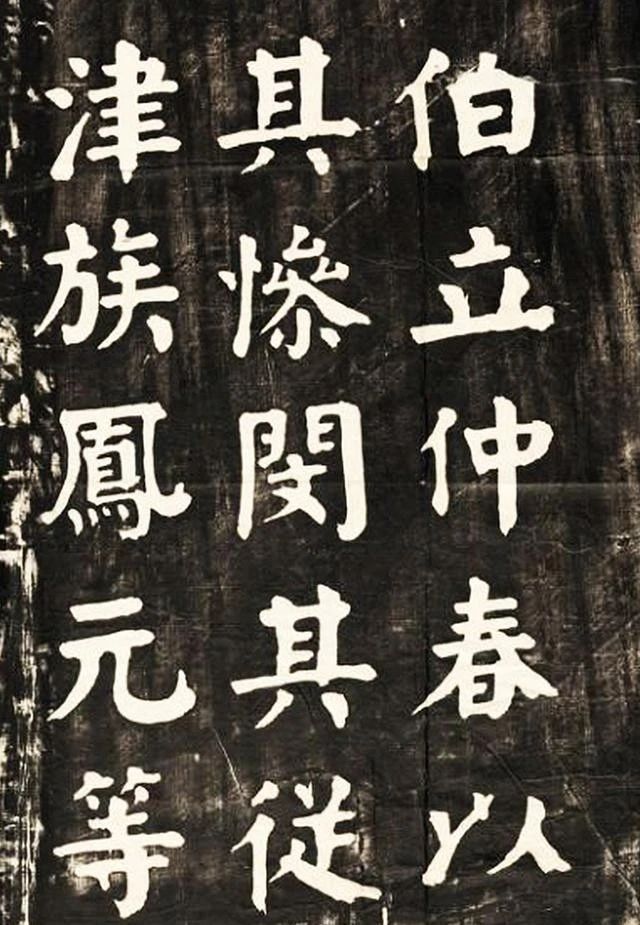 伯立仲春以
其慘閔其從
津族鳳元等